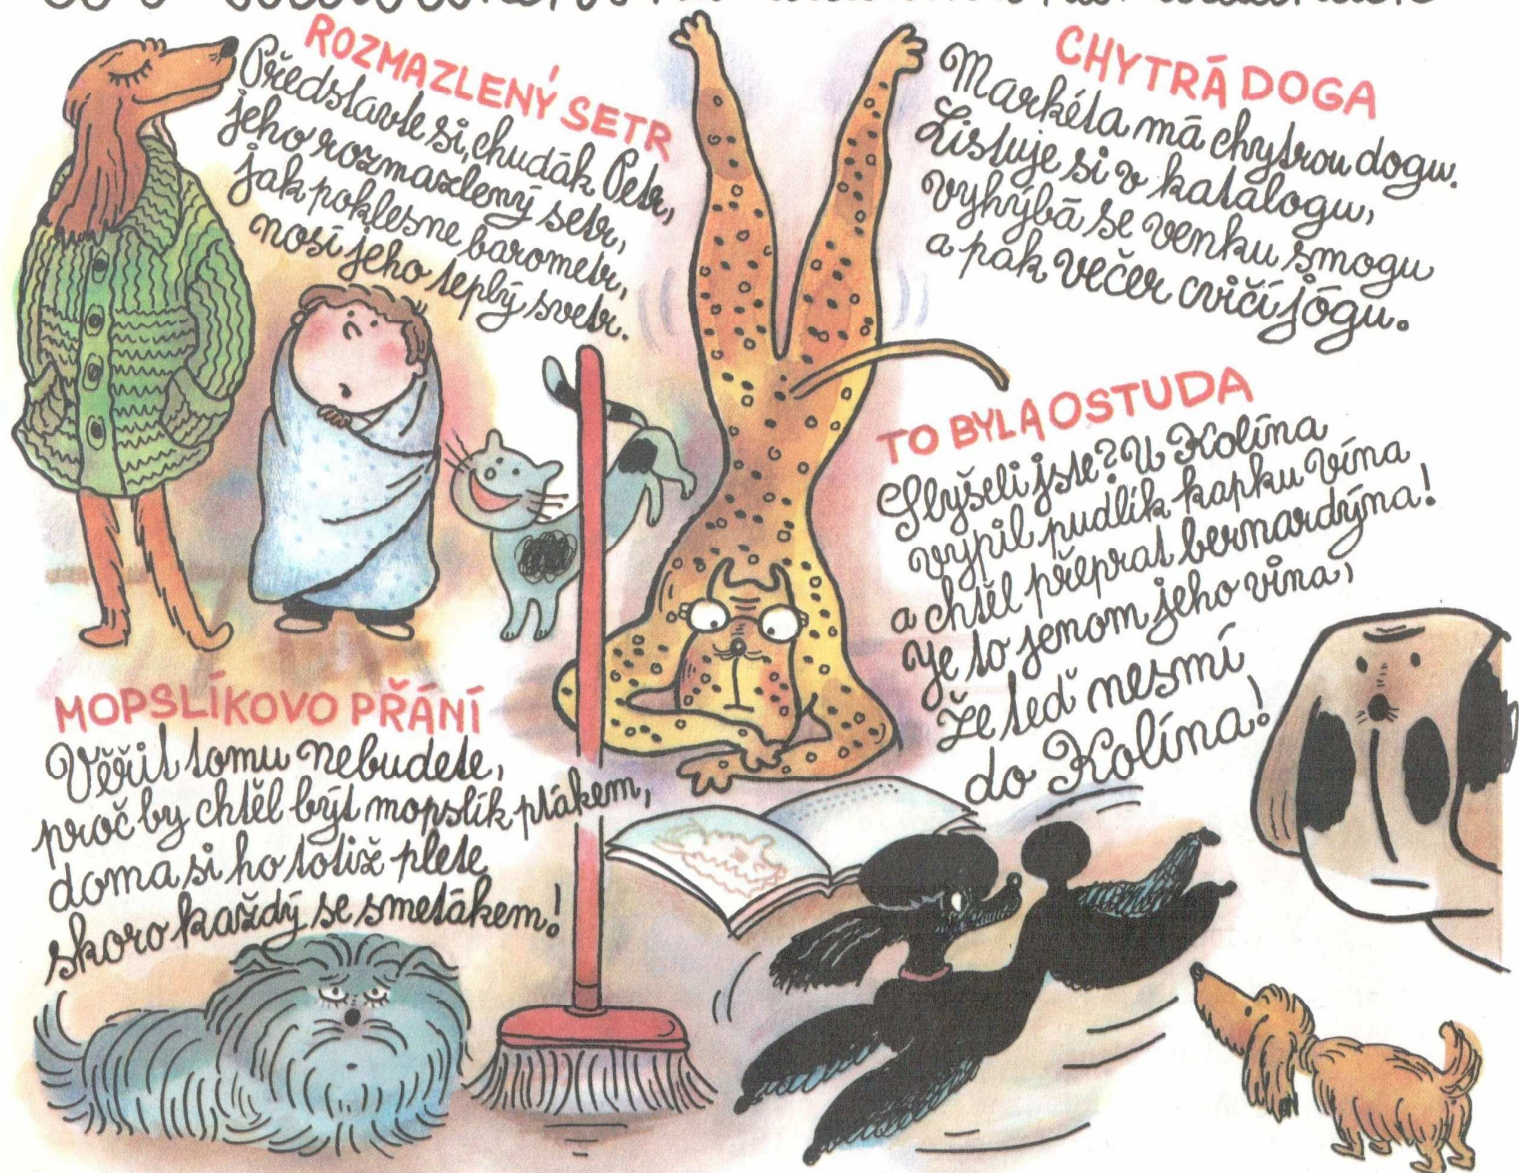 ROZMAZLENÝ SETR
Představte si, chudák Petr,
jeho rozmazlený setr,
jak poklesne barometr,
nosí jeho teplý svetr.
CHYTRÁ DOGA
Markéta má chytrou dogu.
Listuje si v katalogu,
vyhýbá se venku smogu
a pak večer cvičí jógu.
TO BYLA OSTUDA
Slyšeli jste? U Kolína
vypil pudlík kapku vína
a chtěl přeprat bernardýna!
Je to jenom jeho vina,
že teď nesmí
do Kolína!
MOPSLÍKOVO PŘÁNÍ
Věřit tomu nebudete,
proč by chtěl být mopslík ptákem,
doma si ho totiž plete
skoro každý se smetákem!